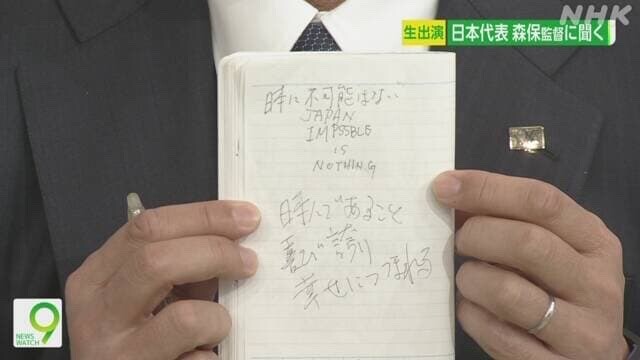 NHK
生出演 日本代表 森保監督に聞く
日本に不可能はない
JAPAN
IMPSSBLE
IS
NOTHING
日本人であること
喜び 誇り
幸せにつつまれる
9
NEWS
WATCH